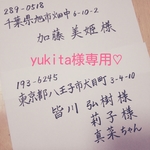 289-0518
千葉県旭市ツ畑中6-10-2
加藤 美姫 様
yukita様専用♡
193-6245
東京都八王子市犬目町3-4-10
皆川 弘樹 様
莉子 様
真菜ちゃん